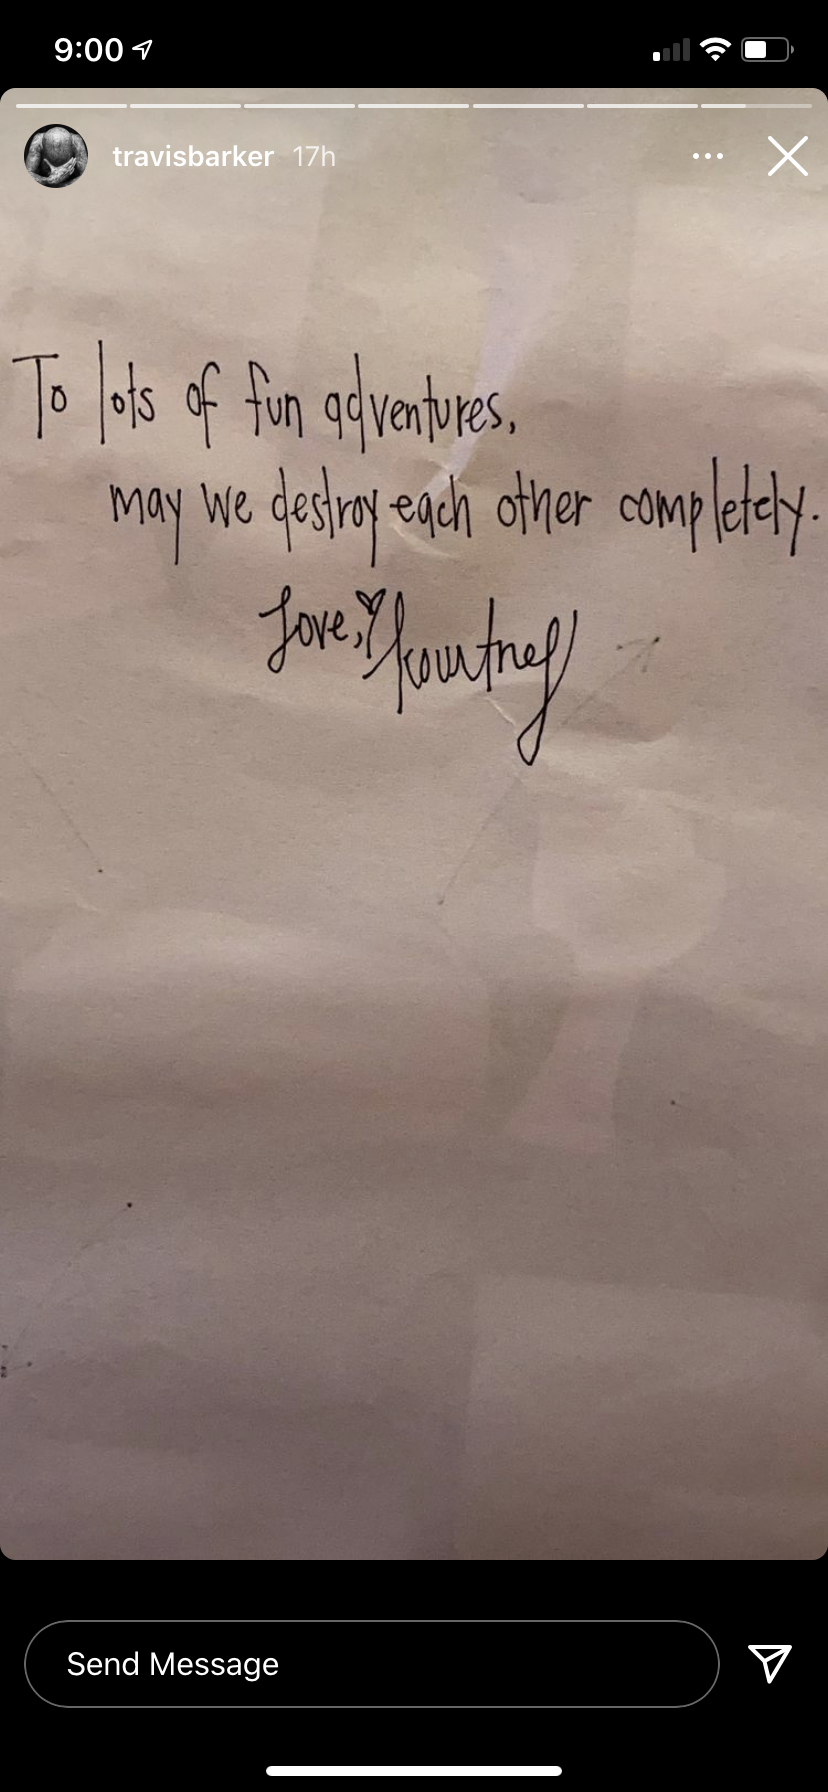 9:00
travisbarker 17h
To lots of fun adventures,
may we destroy each other completely.
Love, kourtney
Send Message